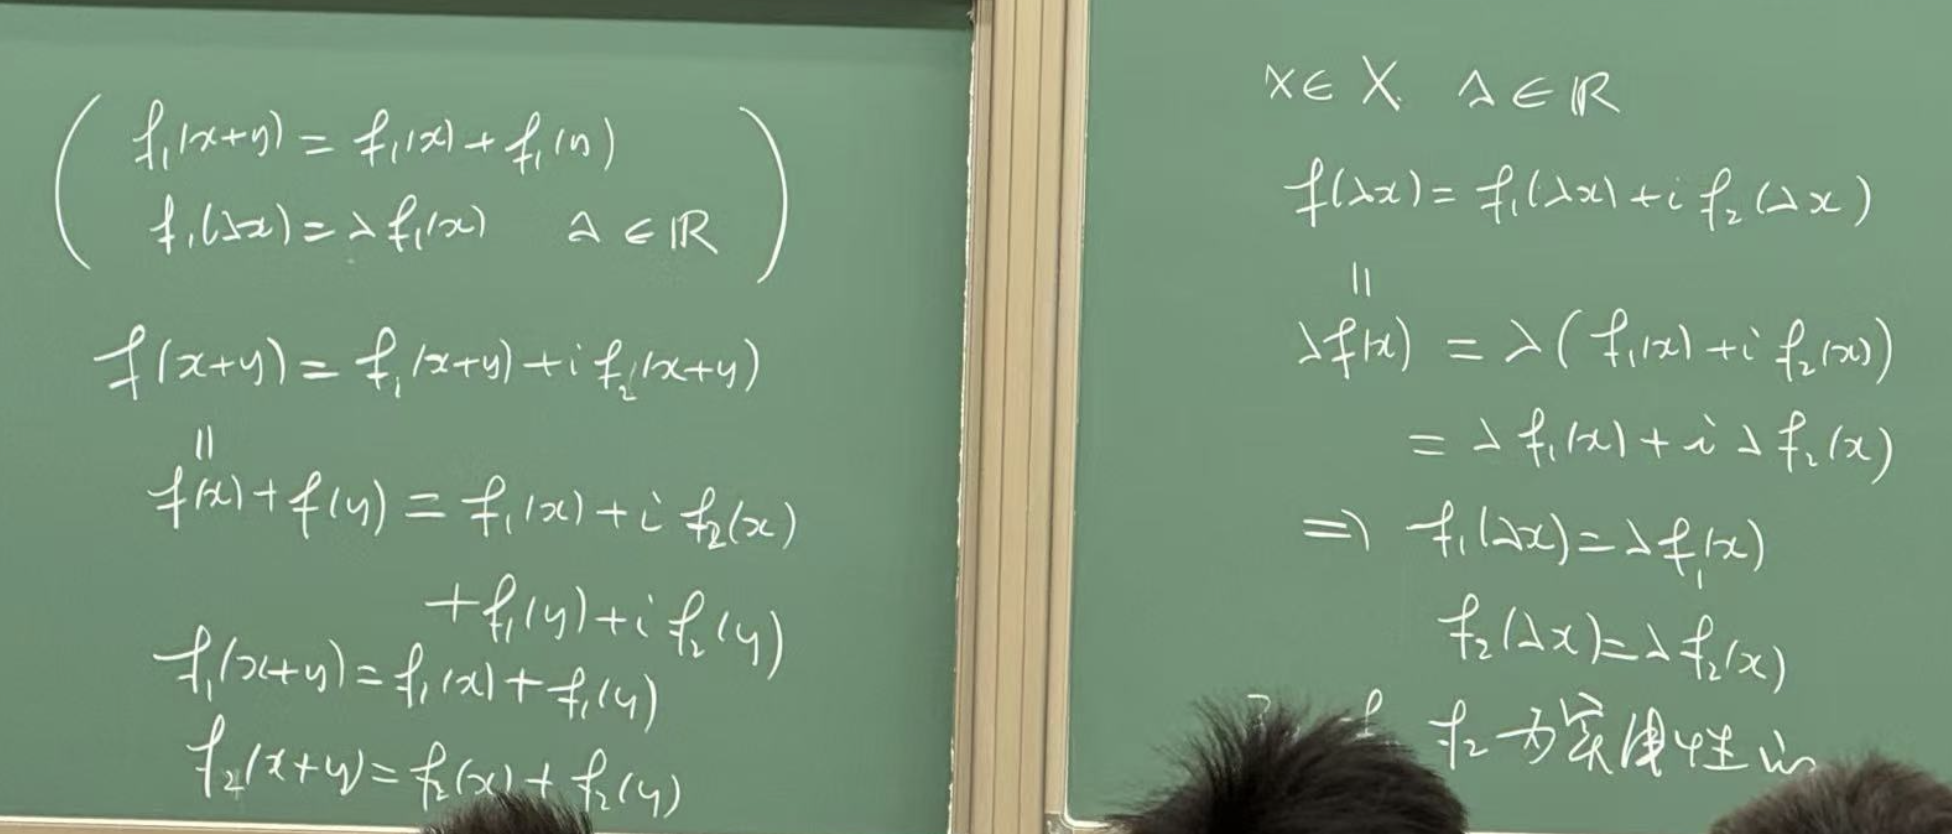 f₁(x+y) = f₁(x) + f₁(y)
f₁(λx) = λ f₁(x) λ ∈ ℝ
f(x+y) = f₁(x+y) + i f₂(x+y)
||
f(x) + f(y) = f₁(x) + i f₂(x)
+ f₁(y) + i f₂(y)
f₁(x+y) = f₁(x) + f₁(y)
f₂(x+y) = f₂(x) + f₂(y)
x ∈ X. λ ∈ ℝ
f(λx) = f₁(λx) + i f₂(λx)
||
λf(x) = λ( f₁(x) + i f₂(x))
= λ f₁(x) + i λ f₂(x)
⇒ f₁(λx) = λ f₁(x)
f₂(λx) = λ f₂(x)
f₂ 为实线性的